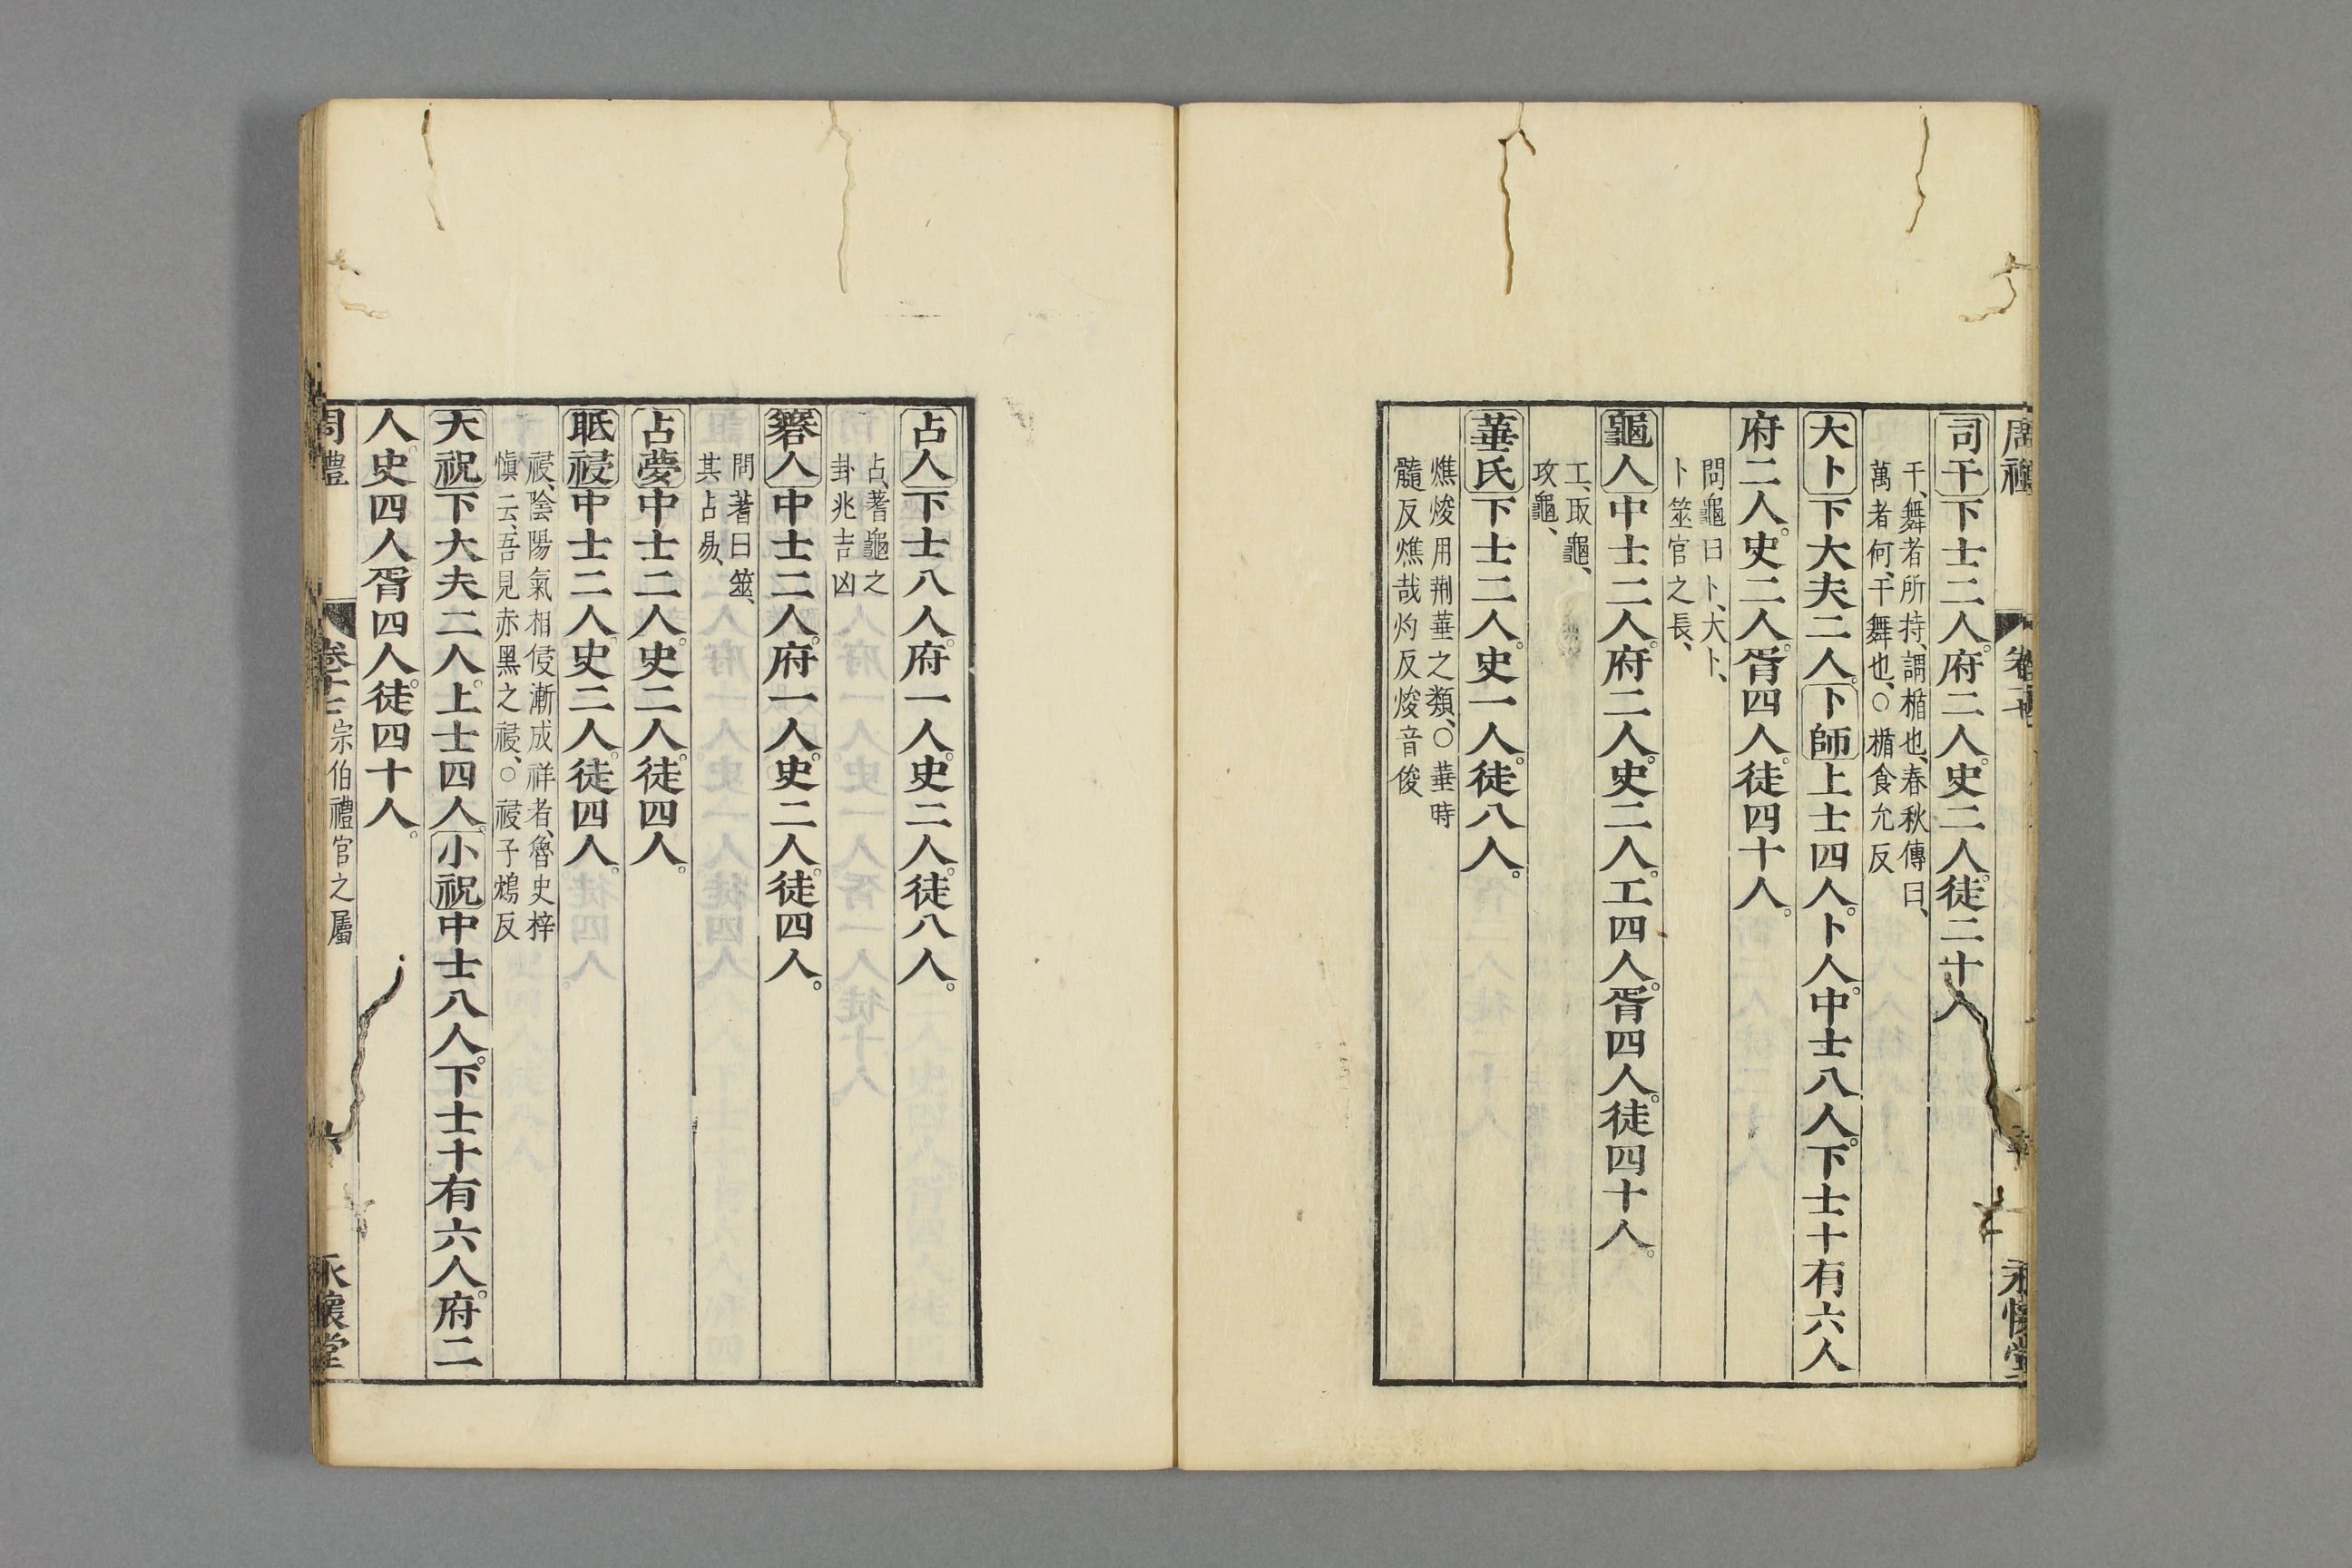 司干下士二人。府二人。史二人。徒二十人
干、舞者所持、謂楯也、春秋傳曰、
萬者何、干舞也、○楯食允反
大卜下大夫二人。卜師上士四人。卜人。中士八人。下士十有六人
府二人。史二人。胥四人。徒四十人。
問龜曰卜、大卜、
卜筮官之長、
龜人中士二人。府二人。史二人。工四人。胥四人。徒四十人。
工、取龜、
攻龜、
菙氏下士二人。史一人。徒八人。
燋焌用荆菙之類、○菙時
髓反燋哉灼反焌音俊
占人下士八人。府一人。史二人。徒八人。
占、蓍龜之
卦兆吉凶
簭人中士二人。府一人。史二人。徒四人。
問蓍曰筮、
其占易、
占夢中士二人。史二人。徒四人。
眡祲中士二人。史二人。徒四人。
祲、陰陽氣相侵漸成祥者、魯史梓
慎云、吾見赤黑之祲、○祲子鴆反
大祝下大夫二人。上士四人。小祝中士八人。下士十有六人。府二
人。史四人胥四人。徒四十人。
周禮 卷十七 宗伯禮官之屬 六 永懷堂